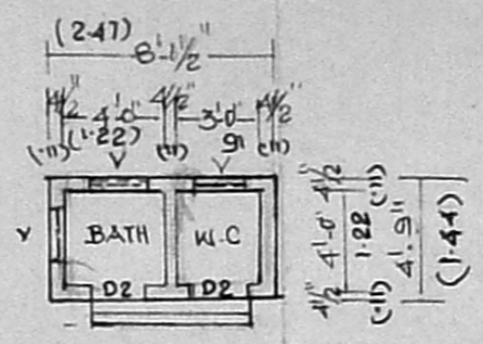 (2.47)
8'-1½"
4½" 4'-0" 4½" 3'-0" 4½"
(.11) (1.22) (.11) .91 (.11)
V V
V BATH W.C
D2 D2
4½" 4'-0" 4½"
(.11) 1.22 (.11)
4'-9"
(1.44)